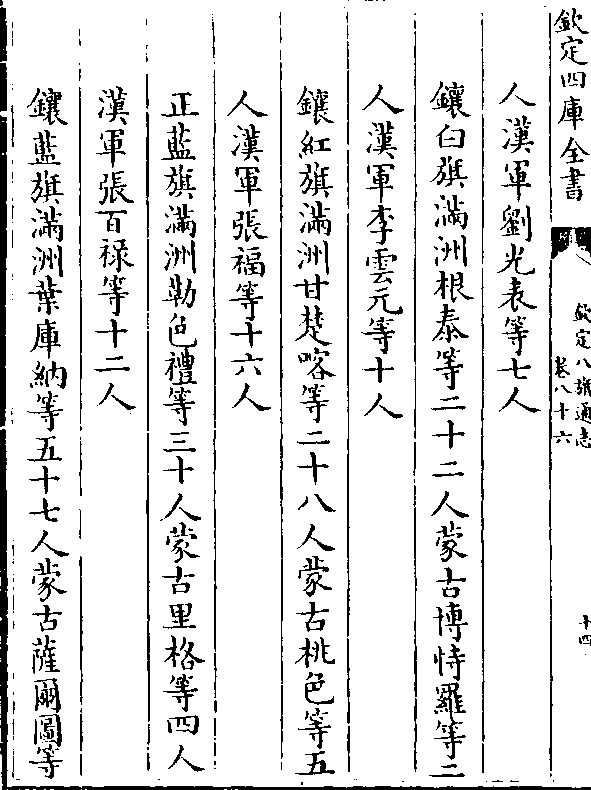 欽定四庫全書
欽定八旗通志
卷八十六
十四
人漢軍劉光表等七人
鑲白旗滿洲根泰等二十二人蒙古博恃羅等二
人漢軍李雲元等十人
鑲紅旗滿洲甘楚喀等二十八人蒙古桃色等五
人漢軍張福等十六人
正藍旗滿洲勒色禮等三十人蒙古里格等四人
漢軍張百祿等十二人
鑲藍旗滿洲葉庫納等五十七人蒙古薩爾圖等